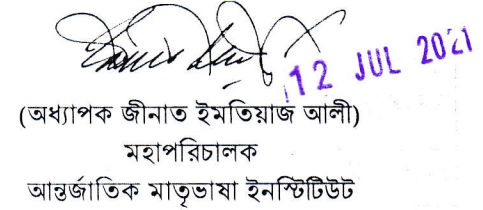 12 JUL 2021
(অধ্যাপক জীনাত ইমতিয়াজ আলী)
মহাপরিচালক
আন্তর্জাতিক মাতৃভাষা ইনস্টিটিউট